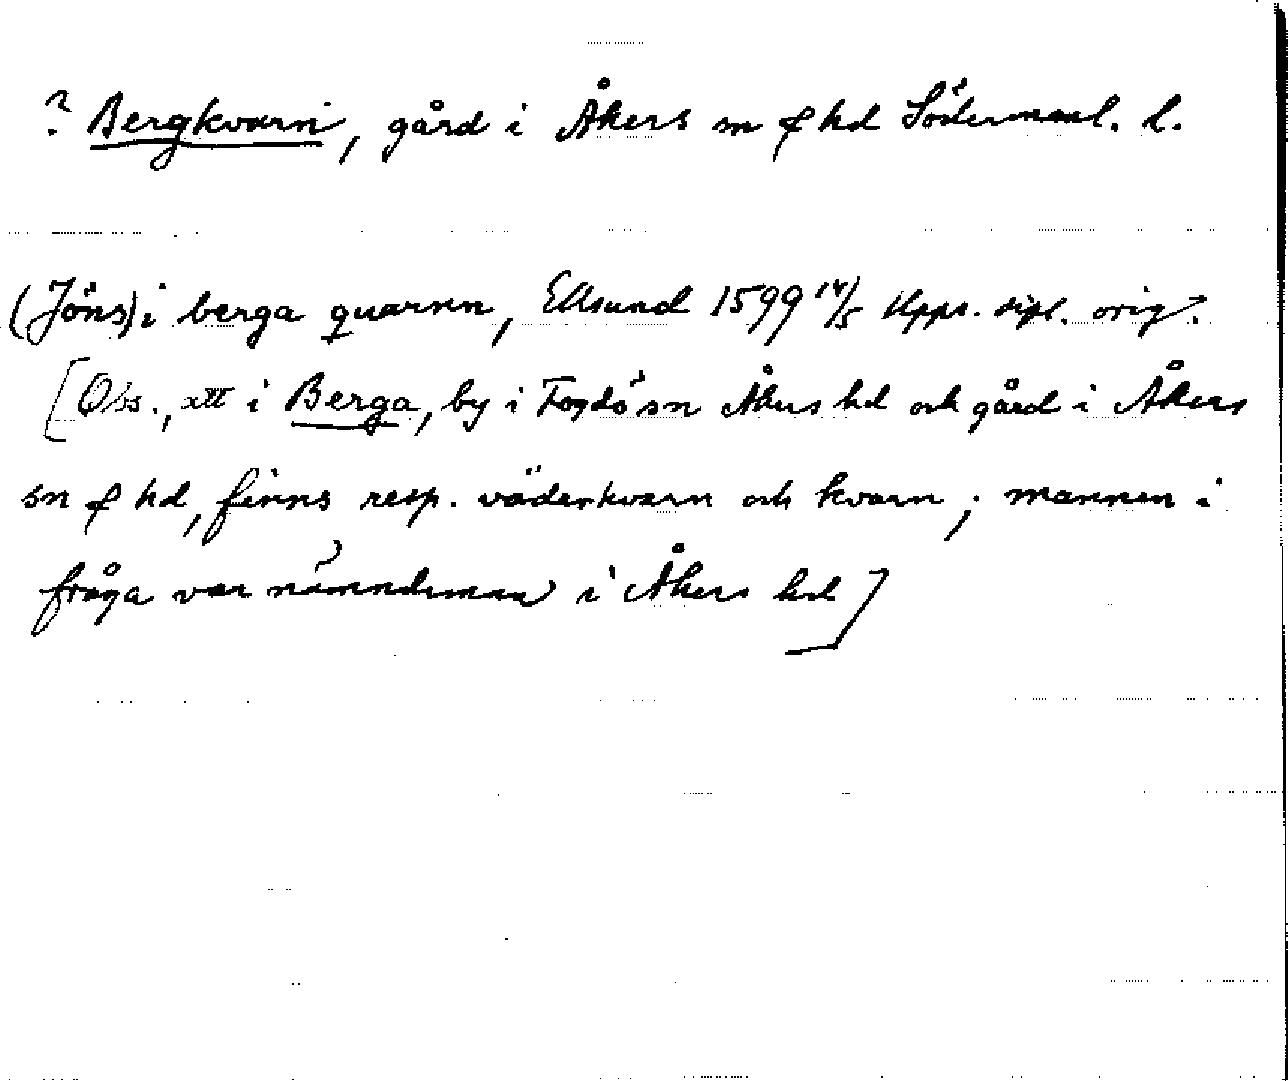 ? Bergkvarn, gård i Åkers sn & hd Södermanl. l.
(Jöns) i berga quarnn, Edsund 1599 14/5 Upps. dipl. orig.
[Obs., att i Berga, by i Fogdö sn Åkers hd och gård i Åkers
sn & hd, finns resp. väderkvarn och kvarn; mannen i
fråga var nämndeman i Åkers hd]